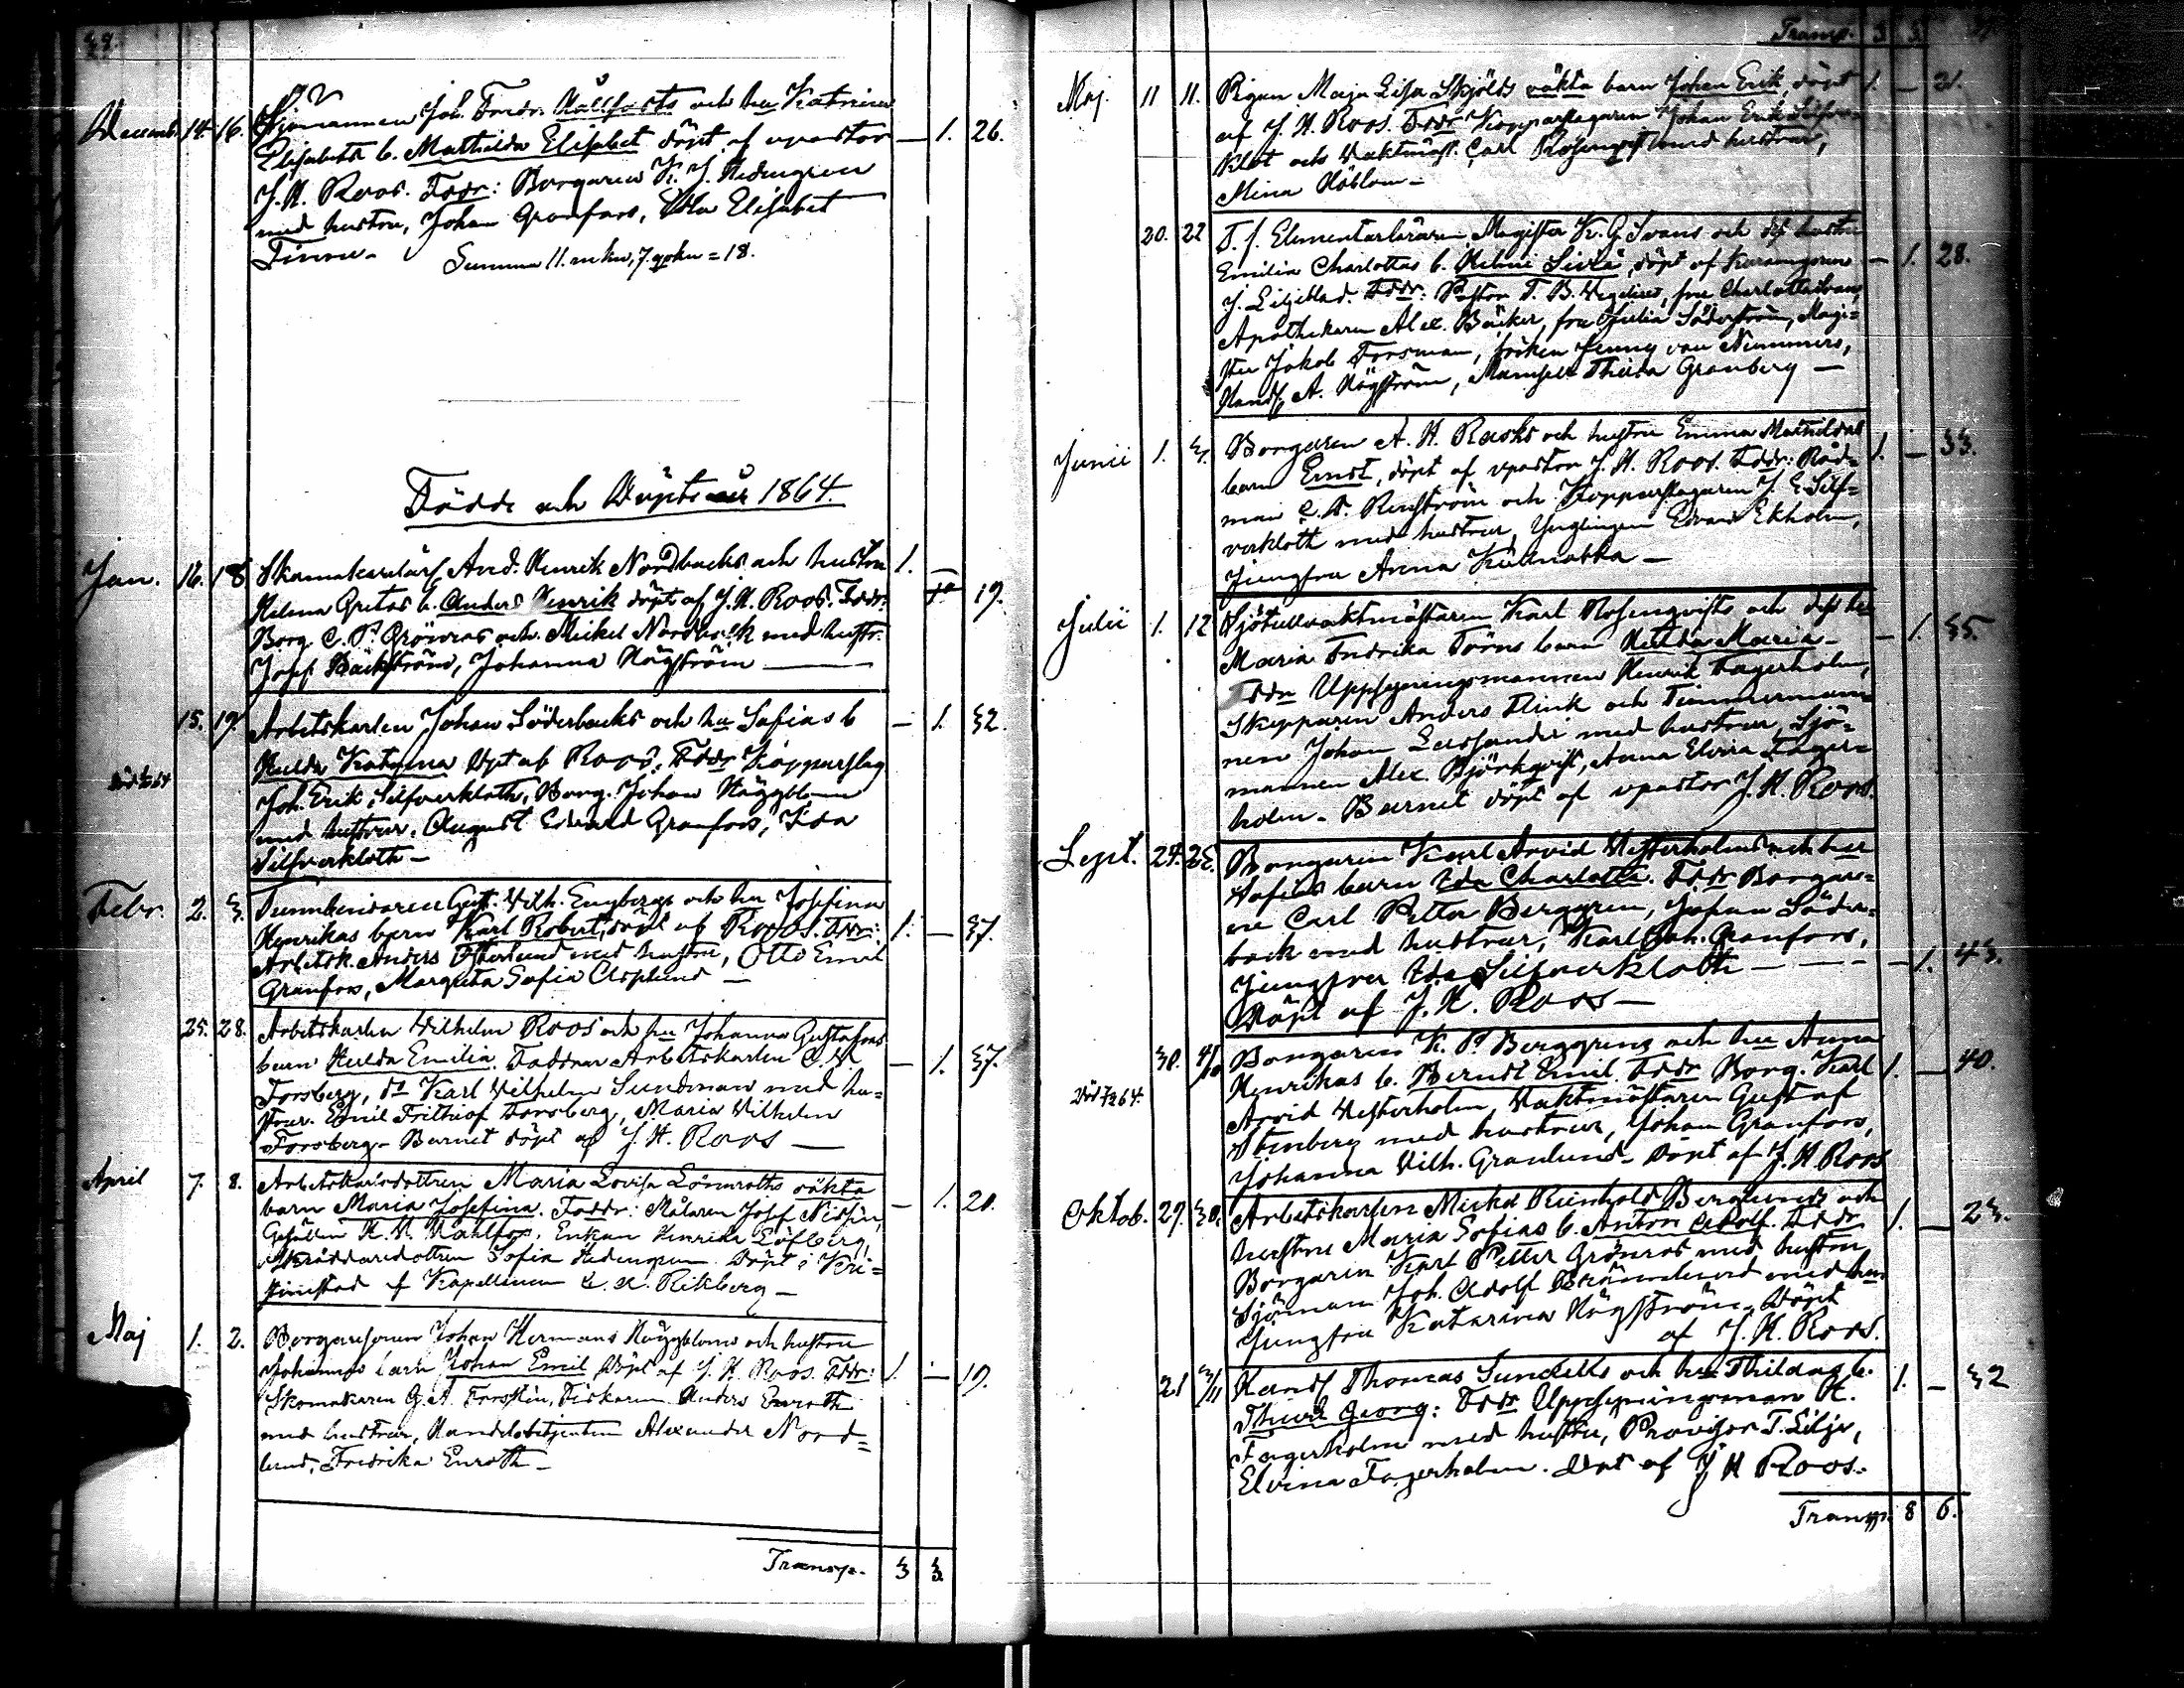 Decemb. 14. 16. Sjömannen Joh. Fredr. Hållfasts och hu Katrina
Elisabeths b. Mathilda Elisabet döpt af vpastor — 1. 26.
J. H. Roos. Fddr: Borgaren K. J. Hedengren
med hustru, Johan Granfors, Elisabet
Finne.
Summa 11. mkn, 7. qvkn = 18.
Födde och Döpte år 1864.
Jan. 16. 18 Skomakare And. Henrik Nordbacks och hustru 1. —
Helena Gretas b. Anders Henrik döpt af J. H. Roos. Fddr: 19.
Borg. C. P. Grönroos och Mickel Nordback med hustr.
Josef Bäckström, Johanna Hägström —
15. 19. Arbetskarlen Johan Söderbacks och hu Sofias b — 1. 32.
Hulda Katrina döpt af Roos. Fddr Kopparslag
Joh. Erik Silfverkloth, Borg. Johan Häggblom
med hustrur. August Edvard Granfors, Ida
Silfverkloth —
Febr. 2. 3. Tunnbindaren Gust. Wilh. Engbergs och hu Josefina
Henrikas barn Karl Robert, döpt af Roos. Fddr: 1. — 37.
Arbetsk. Anders Österlund med hustru, Otto Emil
Granfors, Margreta Sofia Asplund —
25. 28. Arbetskarlen Wilhelm Roos och hu Johanna Gustafvas
barn Hulda Emilia. Faddrar Arbetskarlen — 1. 37.
Forsberg, do Karl Wilhelm Sundman med hu-
strur. Emil Frithiof Forsberg, Maria Wilhelm
Forsberg. Barnet döpt af J. H. Roos —
April 7. 8. Arbetskarlsdottren Maria Lovisa Lönnroths oäkta
barn Maria Josefina. Faddr: Målaren Josef Nissén, — 1. 20.
Gesällen K. W. Wahlfors, Enkan Henrika Löfberg,
Skräddaredottren Sofia Hedengren. Döpt i Kri-
stinestad af Kapellanen Rikberg —
Maj 1. 2. Borgaresonen Johan Hermans Häggbloms och hustru
Johannas barn Johan Emil döpt af J. H. Roos. Fddr: 1. — 19.
Skomakaren G. A. Forstén, Fiskaren Anders Enroth
med hustrur, Handelsbetjenten Alexander Nord-
lund, Fredrika Enroth —
Transp. 3 3.
Transp. 3 3.
Maj. 11 11. Pigan Maja Lisa Skjölds oäkta barn Johan Erik, döpt 1. — 21.
af J. H. Roos. Fddr Kopparslagaren Johan Erik Silfver-
klot och Vaktmäst. Carl Rosenqvist med hustrur,
Mina Höblom —
20. 22 T. f. Elementarläraren Magister K. G. Svans och dess hustru
Emilia Charlottas b. Helmi Livia, döpt af — 1. 28.
J. Liljeblad. Fddr: Pastor T. B. Wegelius, fru Charlotta Svan,
Apothekaren Alex. Bäcker, fru Julia Söderström, Magi-
ster Jakob Forsman, fröken Jenny von Nummers,
Handl. A. Hägström, Mamsell Thilda Granberg —
Junii 1. 3. Borgaren A. H. Rasks och hustru Emma Mathildas
barn Ernst, döpt af vpastor J. H. Roos. Fddr: Råd- 1. — 33.
man C. A. Renström och Kopparslagaren J. E. Silf-
verkloth med hustrur, Ynglingen Edvard Ekholm,
Jungfru Anna Kullnatka —
Julii 1. 12 Sjötullvaktmästaren Karl Rosenqvists och dess hu
Maria Fredrika Törns barn Hulda Maria — — 1. 35.
Fddr Uppsyningsmannen Henrik Fagerholm,
Skepparen Anders Flink och Timmerman-
nen Johan Lassander med hustrur, Sjö-
mannen Alex. Björkqvist, Anna Elvira Fager-
holm. Barnet döpt af vpastor J. H. Roos.
Sept. 24. 25. Borgaren Karl Arvid Westerholms och hu
Sofias barn Ida Charlotta. Fddr Borgar-
ne Carl Petter Berggren, Johan Söder-
back med hustrur, Karl Joh. Granfors,
Jungfru Ida Silfverkloth — — 1. 43.
Döpt af J. H. Roos —
30. 4/10 Borgaren K. P. Berggrens och hu Anna
Henrikas b. Berndt Emil. Fddr Borg. Karl 1. — 40.
Arvid Westerholm, Vaktmästaren Gustaf
Stenberg med hustrur, Johan Granfors,
Johanna Wilh. Granlund. Döpt af J. H. Roos
Oktob. 29. 30. Arbetskarlen Mickel Reinhold Berglunds och
hustru Maria Sofias b. Anton Adolf. Fddr 1. — 23.
Borgaren Karl Petter Grönroos med hustru
Sjöman Joh. Adolf Brännlund med hu
Jungfru Katarina Hägström. Döpt
af J. H. Roos.
21 3/11 Handl. Thomas Sundells och hu Thildas b.
Thure Georg: Fddr Uppsyningsman H. 1. — 32
Fagerholm med hustru, Provisor T. Lilje,
Elvina Fagerholm. Döpt af J H Roos.
Transp. 8 6.